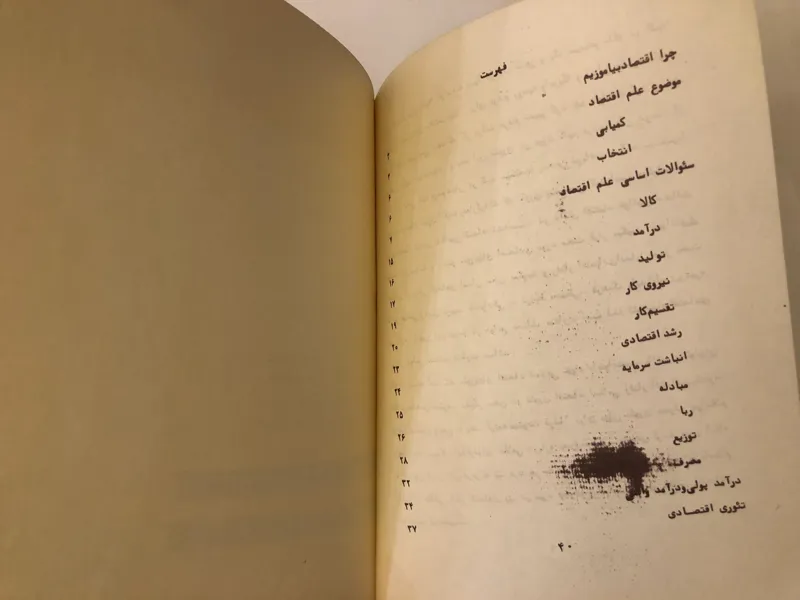 فهرست
چرا اقتصاد بیاموزیم
موضوع علم اقتصاد
کمیابی ۲
انتخاب ۲
سئوالات اساسی علم اقتصاد ۶
کالا ۶
درآمد ۹
تولید ۱۵
نیروی کار ۱۶
تقسیم‌کار ۱۷
رشد اقتصادی ۱۹
انباشت سرمایه ۲۰
مبادله ۲۳
ربا ۲۴
توزیع ۲۵
مصرف ۲۶
درآمد پولی‌ودرآمد واقعی ۲۸
تئوری اقتصادی ۳۲
۳۴
۳۷
۴۰